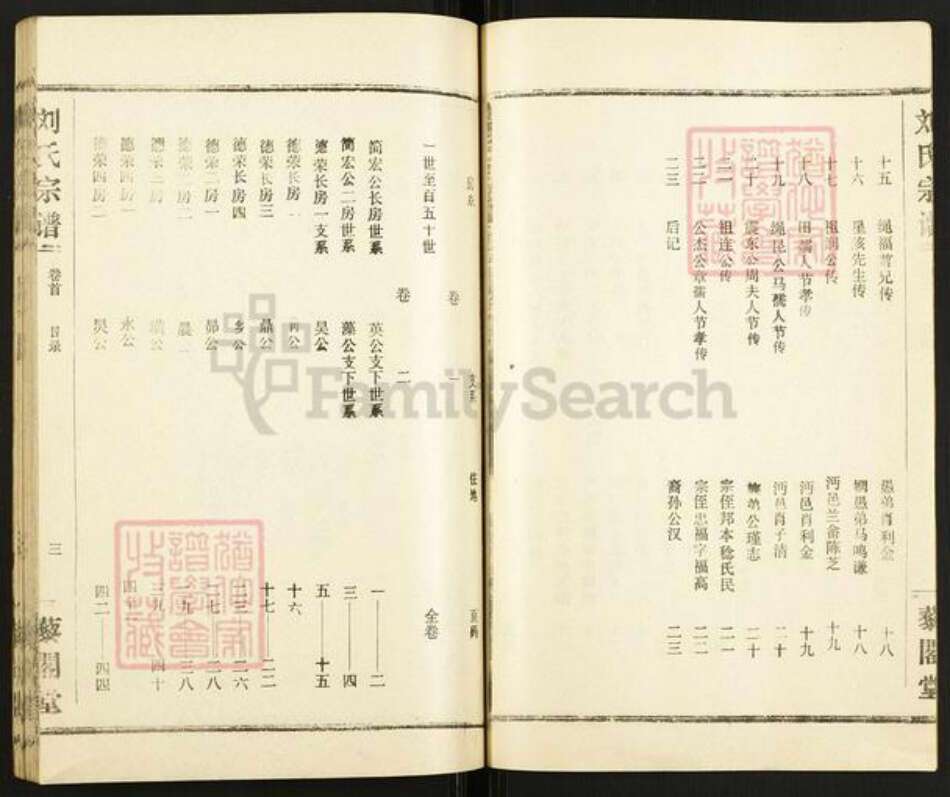 刘氏宗谱
藜閣堂
十五 绳福曹兄传 愚弟肖利金 十八
十六 星垓先生传 姻愚弟马鸣谦 十八
十七 沔邑兰畲陈芝 十九
十八 田孺人节孝传 沔邑肖利金 十九
十九 绳昆公马孺人节传 沔邑肖子清 二十
二十 震东公周夫人节传 公瑾志 二十
二一 祖连公传 宗侄邦本稔氏民 二一
二二 公杰公章孺人节孝传 宗侄忠福字福高 二二
二三 后记 裔孙公汉 二三
刘氏宗谱 卷首 目录 三 藜閣堂
支系 住地 页码
卷一
一世至百五十世 全卷
卷二
简宏公长房世系 英公支下世系 一——二
简宏公二房世系 藻公支下世系 三——四
德荣长房一支系 昊公 五——十五
德荣长房 公 十六
德荣长房三 晶公 十七——二二
德荣长房四 公 二三——二六
德荣二房一 昴公 二八
德荣二房 晨 三八
德荣三房 公 三九——四十
德荣四房一 永公
德荣四房二 昊公 四二——四四
FamilySearch